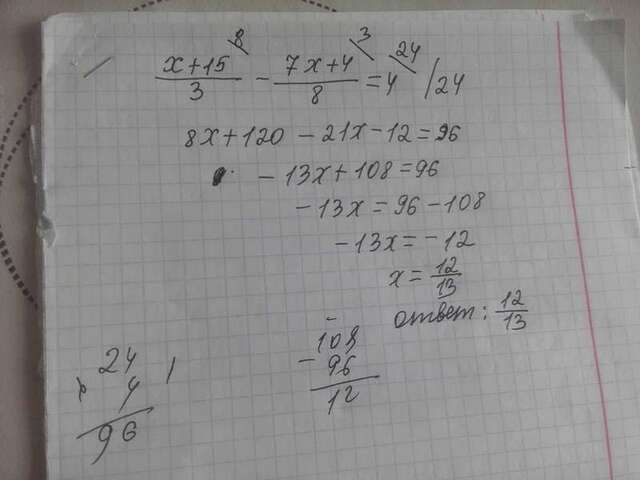 x+15/3 ⁸ - 7x+4/8 ³ = 4 ²⁴ /24
8x+120-21x-12=96
-13x+108=96
-13x=96-108
-13x=-12
x=12/13
ответ: 12/13
24
x 4
96
108
- 96
12